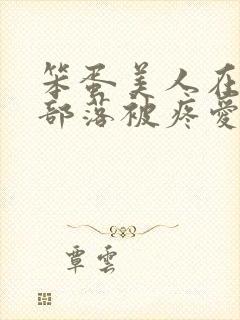 笨蛋美人在
部落被疼愛
覃雲